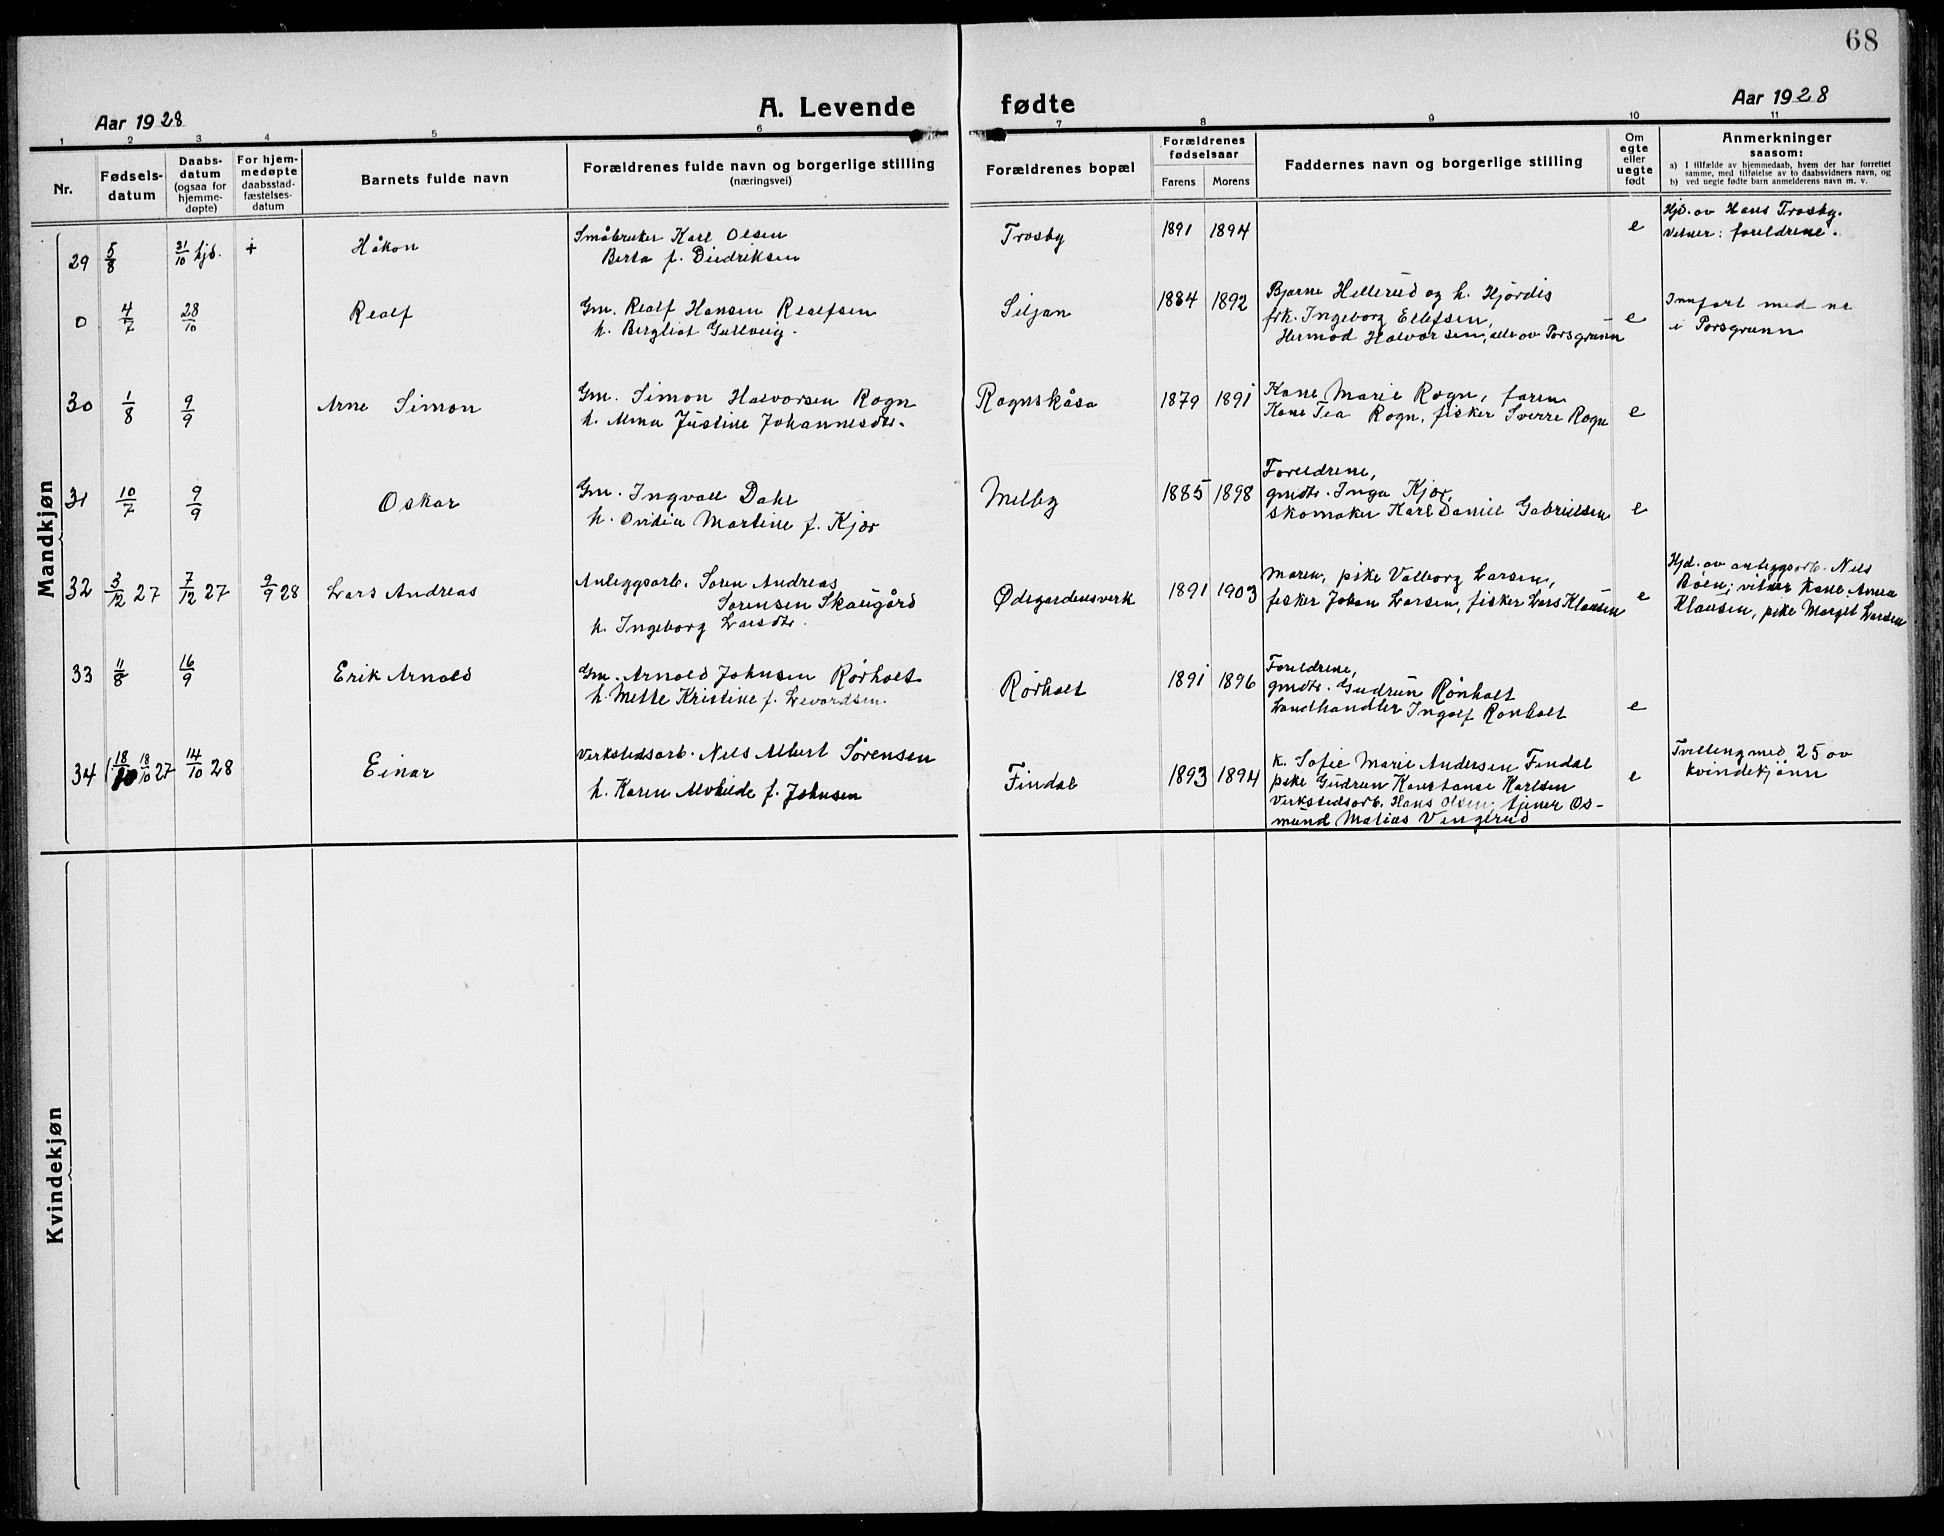 68
Aar 1928
A. Levende
fødte
Aar 1928
1 2 3 4 5 6 7 8 9 10 11
Nr.
Fødsels-
datum
Daabs-
datum
(ogsaa for
hjemme-
døpte)
For hjem-
medøpte
daabsstad-
fæstelses-
datum
Barnets fulde navn
Forældrenes fulde navn og borgerlige stilling
(næringsvei)
Forældrenes bopæl
Forældrenes
fødselsaar
Farens Morens
Faddernes navn og borgerlige stilling
Om
egte
eller
uegte
født
Anmerkninger
saasom:
a) I tilfælde av hjemmedaab, hvem der har forrettet
samme, med tilføielse av to daabsvidners navn, og
b) ved uegte fødte barn anmelderens navn m. v.
Mandkjøn
29 5/8 31/10 hjd. + Håkon
Småbruker Karl Olsen
Berta f. Diedriksen
Trosby 1891 1894 e
Hjd. av Hans Trosby.
Vitner: foreldrene.
0 4/7 28/10 Realf
Gm. Realf Hansen Realfsen
h. Bergliot Gullveig.
Siljan 1884 1892
Bjarne Hellerud og h. Hjördis
frk. Ingeborg Ellefsen,
Hermod Halvorsen, alle av Porsgrunn
e
Innfört med nr
i Porsgrunn
30 1/8 9/9 Arne Simon
Gm. Simon Halvorsen Rogn
h. Alma Justine Johannesdtr.
Rognskåsa 1879 1891
Kone Marie Rogn, faren
Kone Tea Rogn, fisker Sverre Rogn e
31 10/7 9/9 Oskar
Gm. Ingvall Dahl
h. Ovidia Martine f. Kjær
Melby 1885 1898
Foreldrene,
gmdtr. Inga Kjær,
skomaker Karl Daniel Gabrielsen e
32 3/12 27 7/12 27 9/9 28 Lars Andreas
Anleggsarb. Sören Andreas
Sörensen Skaugård
h. Ingeborg Larsdtr.
Ødegardensverk 1891 1903
Moren, pike Valborg Larsen,
fisker Johan Larsen, fisker Lars Klausen e
Hjd. av anleggsarb. Nels
Böen; vitner Kone Anna
Klausen, pike Margit Larsen
33 11/8 16/9 Erik Arnold
Gm. Arnold Johnsen Rörholt
h. Mette Kristine f. Levordsen
Rörholt 1891 1896
Foreldrene,
gmdtr. Gudrun Rönholt
Landhandler Ingolf Rönholt e
34 18/10 27 14/10 28 Einar
Verkstedsarb. Nils Albert Sörensen
h. Karen Alvhilde f. Johnsen
Findal 1893 1894
k. Sofie Marie Andersen Findal
pike Gudrun Konstanse Karlsen
verkstedsarb. Hans Olsen, tjener Os-
mund Matias Vingerud
e
Tvilling med 25 av
kvindekjönn
Kvindekjøn